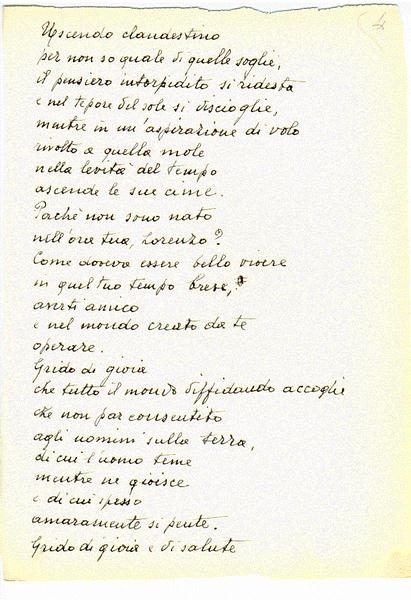 4
Uscendo clandestino
per non so quale di quelle soglie,
il pensiero intorpidito si ridesta
e nel tepore del sole si discioglie,
mentre in un'aspirazione di volo
rivolto a quella mole
nella levità del tempo
ascende le sue cime.
Perchè non sono nato
nell'ora tua, Lorenzo?
Come doveva essere bello vivere
in quel tuo tempo breve,
averti amico
e nel mondo creato da te
operare.
Grido di gioia
che tutto il mondo diffidando accoglie
che non par consentito
agli uomini sulla terra,
di cui l'uomo teme
mentre ne gioisce
e di cui spesso
amaramente si pente.
Grido di gioia e di salute